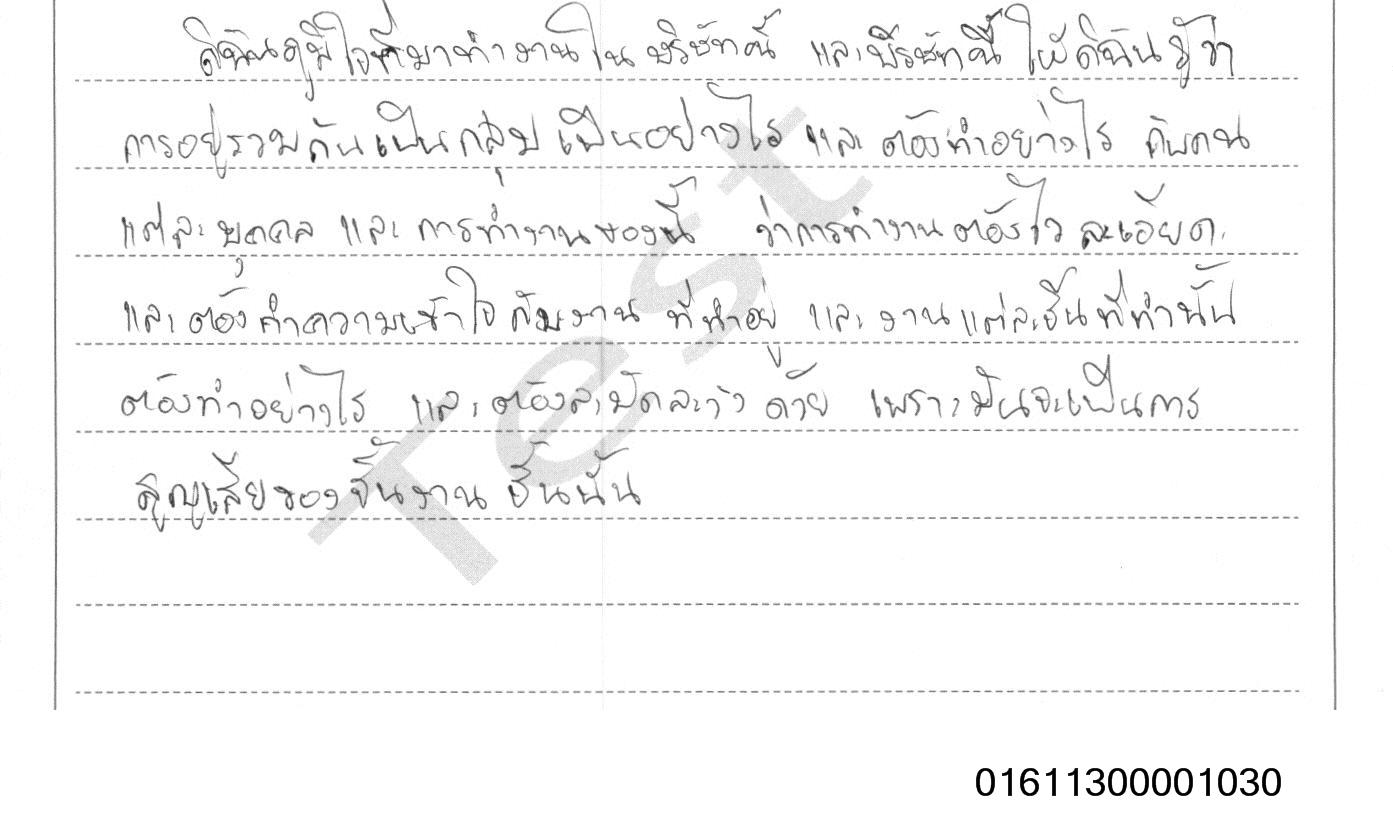 ดิฉันภูมิใจที่มาทำงานในบริษัทนี้ และบริษัทนี้ให้ดิฉันรู้ว่า
การอยู่รวมกันเป็นกลุ่มเป็นอย่างไร และต้องทำอย่างไร กับคน
แต่ละบุคคล และการทำงานของนี้ ว่าการทำงานต้องไว ละเอียด
และต้องทำความเข้าใจกับงาน ที่ทำอยู่ และงานแต่ละชิ้นที่ทำนั้น
ต้องทำอย่างไร และต้องละมัดละวัง ด้วย เพราะมันจะเป็นการ
สูญเสียของชิ้นงาน ชิ้นนั้น
Test
01611300001030